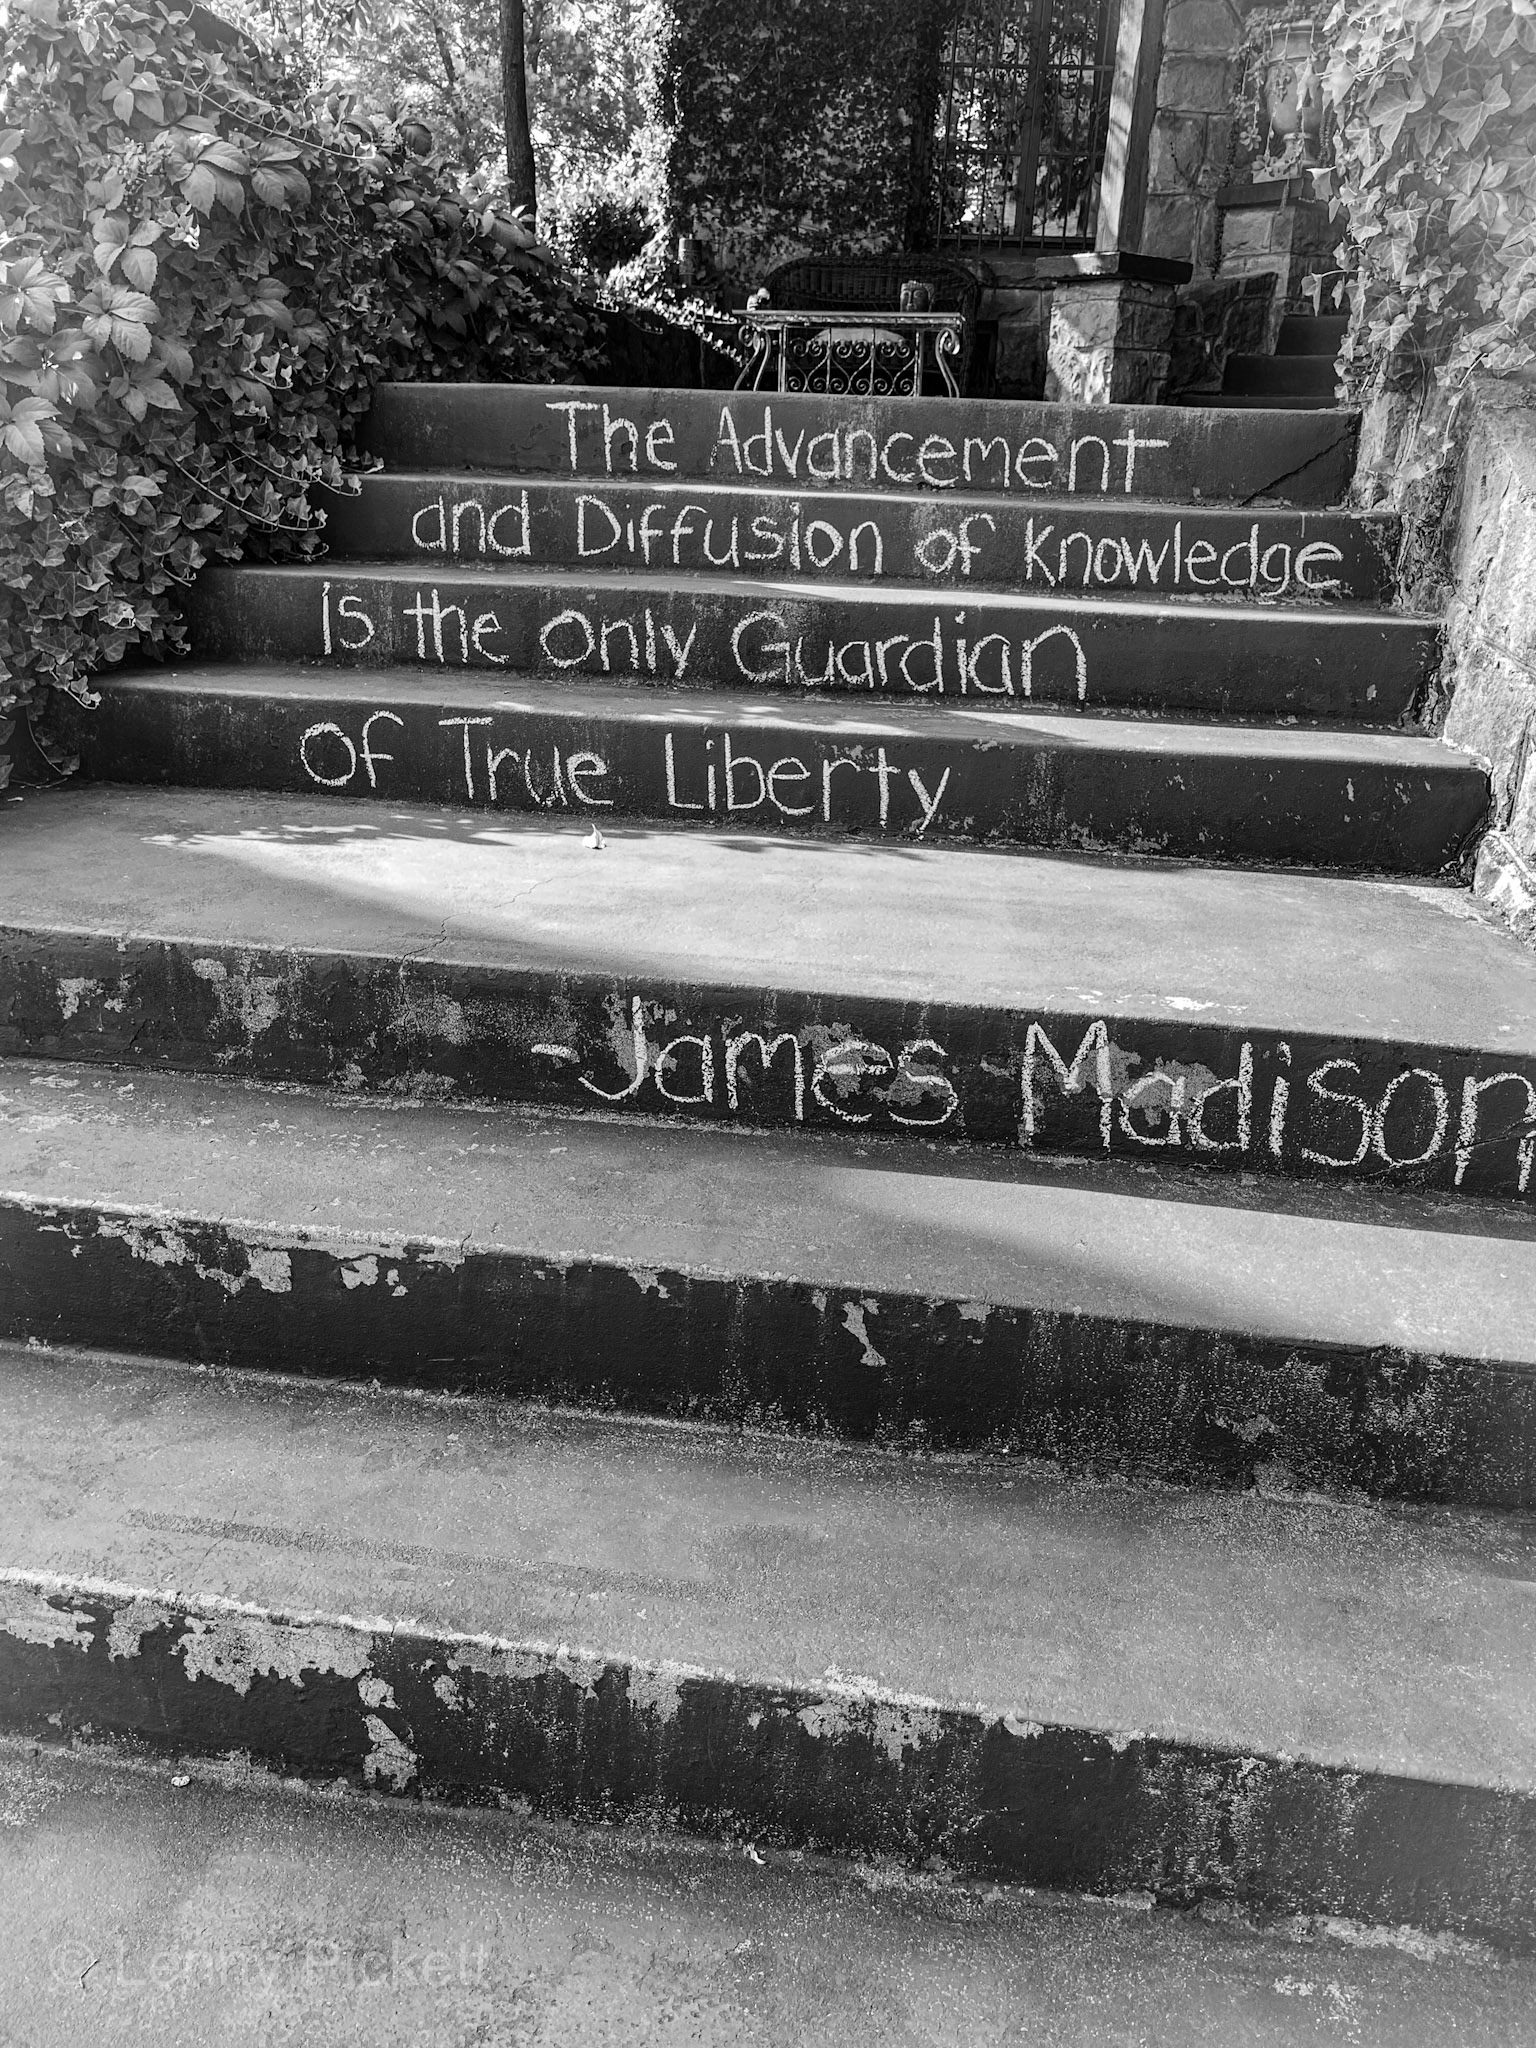 The Advancement
and Diffusion of Knowledge
is the only Guardian
of True Liberty
- James Madison
© Lenny Pickett